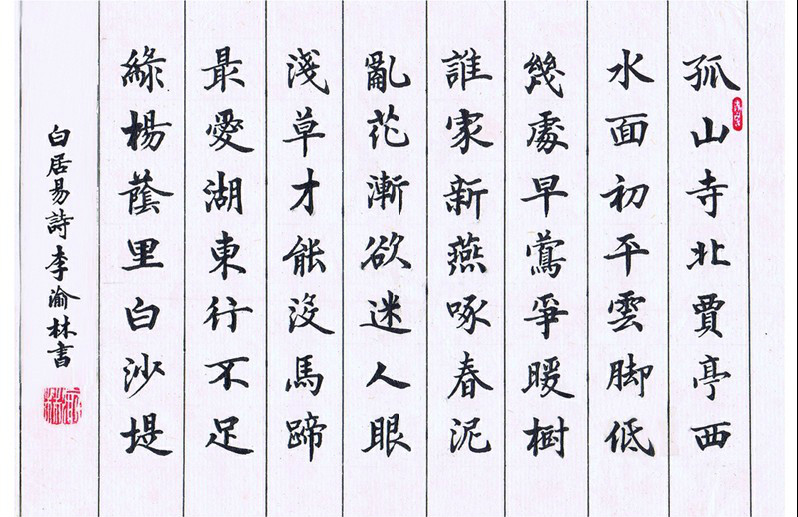 孤山寺北賈亭西
水面初平雲脚低
幾處早鶯爭暖樹
誰家新燕啄春泥
亂花漸欲迷人眼
淺草才能沒馬蹄
最愛湖東行不足
綠楊蔭里白沙堤
白居易詩李渝林書